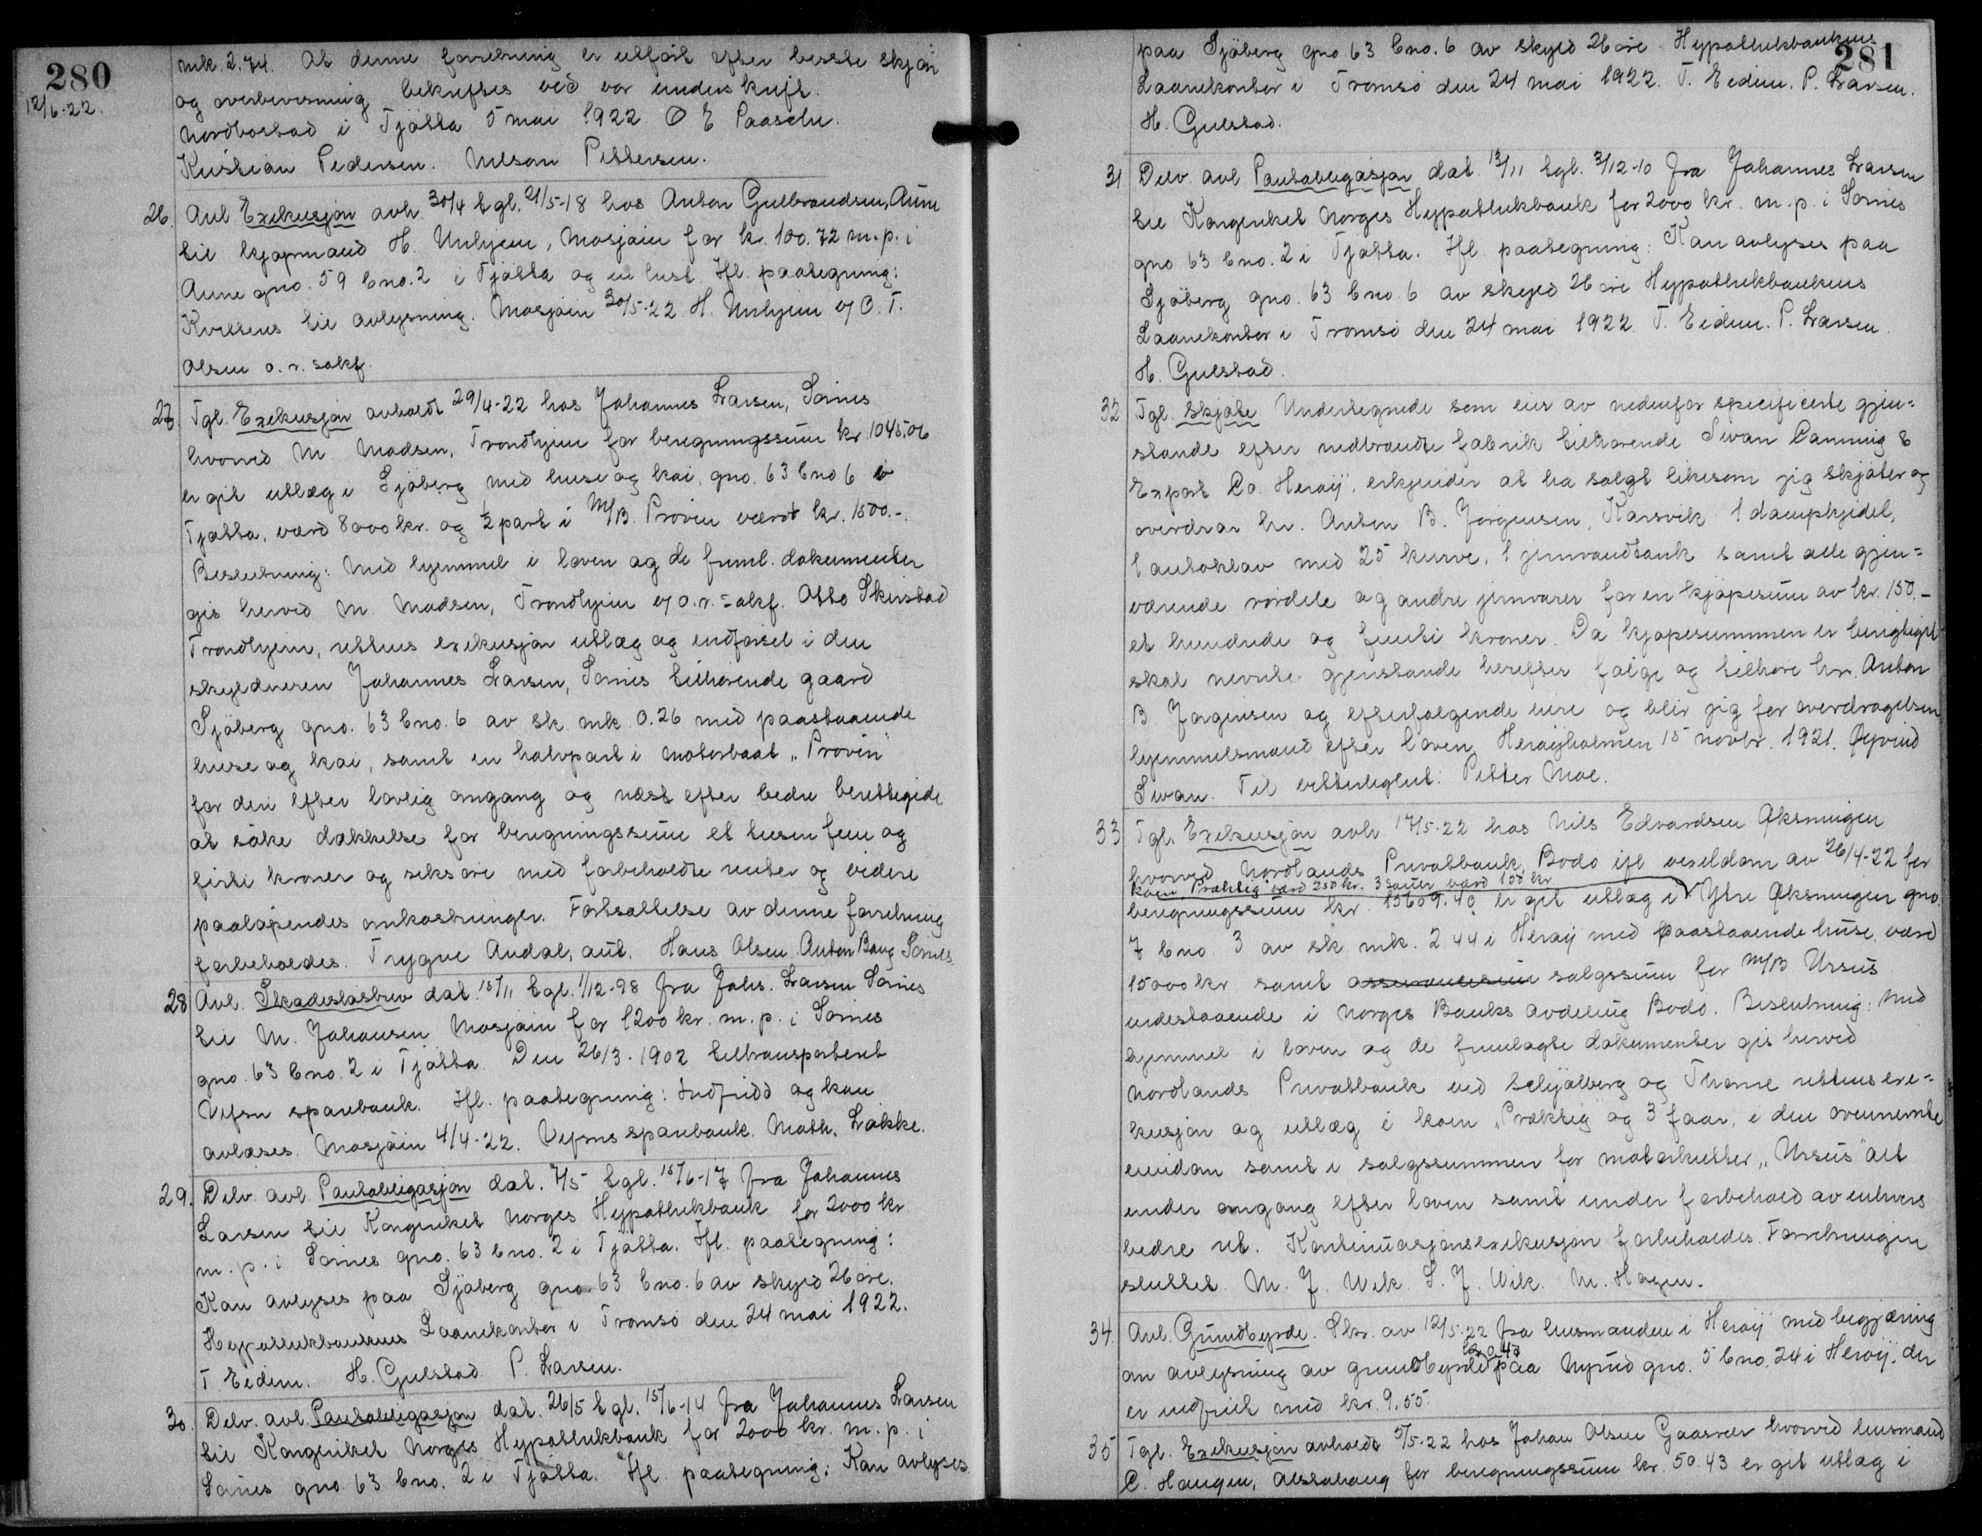 280
12/6-22.
mk. 2.74. At denne forretning er utført efter beste skjøn
og overbevisning bekreftes ved vor underskrift.
Nordbostad i Tjøtta 5 mai 1922. O E Paasche.
Kristian Pedersen. Nilsom Pettersen.
26. Avl. Exekusjon avh. 30/4 tgl. 21/5-18 hos Anton Gulbrandsen, Aune
til kjøpmand H. Unhjem, Mosjøin for kr. 100.72 m.p. i
Aune gno. 59 bno. 2 i Tjøtta og en hest. Ifl. paategning:
Kvitteres til avlysning. Mosjøin 30/5-22 H. Unhjem v/ O. T.
Olsen o.r. sakf.
27. Tgl. Exekusjon avholdt 29/4-22 hos Johannes Larsen, Sørnes
hvorved M Madsen, Trondhjem for beregningssum kr 1045,06
er git utlæg i Sjøberg med huse og kai, gno. 63 bno 6 i
Tjøtta, værd 8000 kr. og ½ part i M/B. Prøven værdt kr. 1500.-.
Beslutning: Med hjemmel i loven og de freml. dokumenter
gis herved M. Madsen, Trondhjem v/ o.r.sakf. Otto Skirstad
Trondhjem, rettens exekusjon utlæg og indførsel i den
skyldneren Johannes Larsen, Sørnes tilhørende gaard
Sjøberg gno. 63 bno. 6 av sk mk. 0.26 med paastaaende
huse og kai, samt en halvpart i motorbaat „Prøven"
for den efter lovlig omgang og næst efter bedre berettigede
at søke dækkelse for beregningssum et tusen fem og
firti kroner og seks øre med forbeholdte renter og videre
paaløpendes omkostninger. Fortsættelse av denne forretning
forbeholdes. Trygve Andal, aut. Hans Olsen. Anton Baug Sørnes
28 Avl. Skadesløsbrev dat. 15/11 tgl. 1/12-98 fra Johs. Larsen Sørnes
til M. Johansen Mosjøin for 1200 kr. m.p. i Sørnes
gno. 63 bno. 2 i Tjøtta. Den 26/3-1902 tiltransporteret
Vefsn sparebank. Ifl. paategning: Indfridd og kan
avlæses. Mosjøin 4/4-22. Vefsns sparebank. Math. Løkke.
29. Delv. avl. Pantobligasjon dat. 7/5 tgl. 15/6-17 fra Johannes
Larsen til Kongeriket Norges Hypothekbank for 2000 kr
m.p. i Sørnes gno. 63 bno. 2 i Tjøtta. Ifl. paategning:
Kan avlyses paa Sjøberg gno 63 bno. 6 av skyld 26 øre.
Hypothekbankens Laanekontor i Tromsø den 24 mai 1922.
T. Eidem. H. Gulstad P. Larsen.
30. Delv. avl. Pantobligasjon dat. 26/5 tgl. 15/6-14 fra Johannes Larsen
til Kongeriket Norges Hypothekbank for 2000 kr. m.p. i
Sørnes gno 63 bno. 2 i Tjøtta. Ifl. paategning: Kan avlyses
281
paa Sjøberg gno 63 bno. 6 av skyld 26 øre. Hypothekbankens
Laanekontor i Tromsø den 24 mai 1922. T. Eidem. P. Larsen.
H. Gulstad.
31 Delv. avl. Pantobligasjon dat 13/11 tgl. 3/12-10 fra Johannes Larsen
til Kongeriket Norges Hypothekbank for 2000 kr. m.p. i Sørnes
gno 63 bno. 2 i Tjøtta. Ifl. paategning: Kan avlyses paa
Sjøberg gno. 63 bno. 6 av skyld 26 øre Hypothekbankens
Laanekontor i Tromsø den 24 mai 1922 T. Eidem. P. Larsen
H. Gulstad.
32 Tgl. Skjøte. Undertegnede som eier av nedenfor specificerte gjen=
stande efter nedbrændte fabrik tilhørende Swan Canning &
Export Co. Herøy, erkjender at ha solgt likesom jeg skjøter og
overdrar hr. Anton B. Jørgensen, Karsvik 1 dampkjedel,
1 autoklav med 25 kurve, 1 jernvandtank samt alle gjen=
værende rørdele og andre jernvarer for en kjøpesum av kr. 150.-
et hundrede og femti kroner. Da kjøpesummen er berigtiget
skal nevnte gjenstande herefter følge og tilhøre hr. Anton
B. Jørgensen og efterfølgende eiere og blir jeg for overdragelsen
hjemmelsmand efter loven. Herøyholmen 15 novbr. 1921. Øyvind
Swan. Til vitterlighet: Petter Moe.
33 Tgl. Exekusjon avh. 17/5-22 hos Nils Edvardsen Øksningen
hvorved Nordlands Privatbank, Bodø ifl vexeldom av 26/4-22 for
koen Præktig værd 250 kr. 3 sauer værd 150 kr
beregningssum kr. 15609.40 er git utlæg i Ytre Øksningen gno.
7 bno. 3 av sk mk. 2.44 i Herøy med paastaaende huse værd
15000 kr samt assurancesum salgssum for M/B Ursus
indestaaende i Norges Banks avdeling Bodø. Beslutning: Med
hjemmel i loven og de fremlagte dokumenter gis herved
Nordlands Privatbank ved Schjølberg og Thorne rettens exe=
kusjon og utlæg i koen „Præktig og 3 faar, i den ovennevnte
eiendom samt i salgssummen for motorkutter „Ursus" alt
under omgang efter loven samt under forbehold av enhvers
bedre ret. Kontinuasjonsexekusjon forbeholdes. Forretningen
sluttet. M. J. Wik. S. J. Wik. M. Hagen.
34. Avl. Grundbyrde. Skr. av 12/5-22 fra lensmanden i Herøy med begjæring
kr 0.47
om avlysning av grundbyrde paa Nyrud gno. 5 bno. 24 i Herøy. der
er indfriet med kr. 9,55.
35 Tgl. Exekusjon avholdt 5/5-22 hos Johan Olsen Gaasvær hvorved lensmand
C. Haugen, Alstahaug for beregningssum kr. 50.43 er git utlæg i